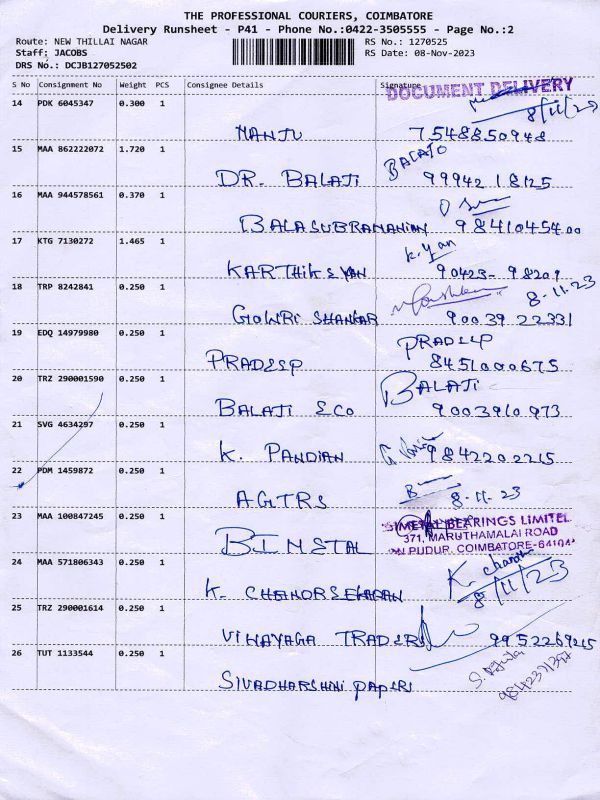 THE PROFESSIONAL COURIERS, COIMBATORE
Delivery Runsheet - P41 - Phone No.:0422-3505555 - Page No.:2
Route: NEW THILLAI NAGAR RS No.: 1270525
Staff: JACOBS RS Date: 08-Nov-2023
DRS No.: DCJB127052502
S No Consignment No Weight PCS Consignee Details Signature
DOCUMENT DELIVERY
14 PDK 6045347 0.300 1 8/11/23
MANJU 7548850948
15 MAA 862222072 1.720 1
DR. BALAJI 99942 18125
16 MAA 944578561 0.370 1
BALASUBRAMANIAN 9841045400
17 KTG 7130272 1.465 1 K.yan
KARTHIKEYAN 90423- 98209
18 TRP 8242841 0.250 1 8-11-23
GOWRI SHANKAR 90039 22331
19 EDQ 14979980 0.250 1 PRADEEP
PRADEEP 8451000675
20 TRZ 290001590 0.250 1 BALAJI
BALAJI & CO 9003910973
21 SVG 4634297 0.250 1
K. PANDIAN 9842202215
22 PDM 1459872 0.250 1 8-11-23
AGTRS
23 MAA 100847245 0.250 1 BIMETAL BEARINGS LIMITED
371, MARUTHAMALAI ROAD
BIMETAL PUDUR, COIMBATORE-641041
24 MAA 571806343 0.250 1 K. charan
8/11/23
K. CHANDRSEKARAN
25 TRZ 290001614 0.250 1
VINAYAGA TRADERS 9952269215
26 TUT 1133544 0.250 1
SIVADHARSHNI PAPERS